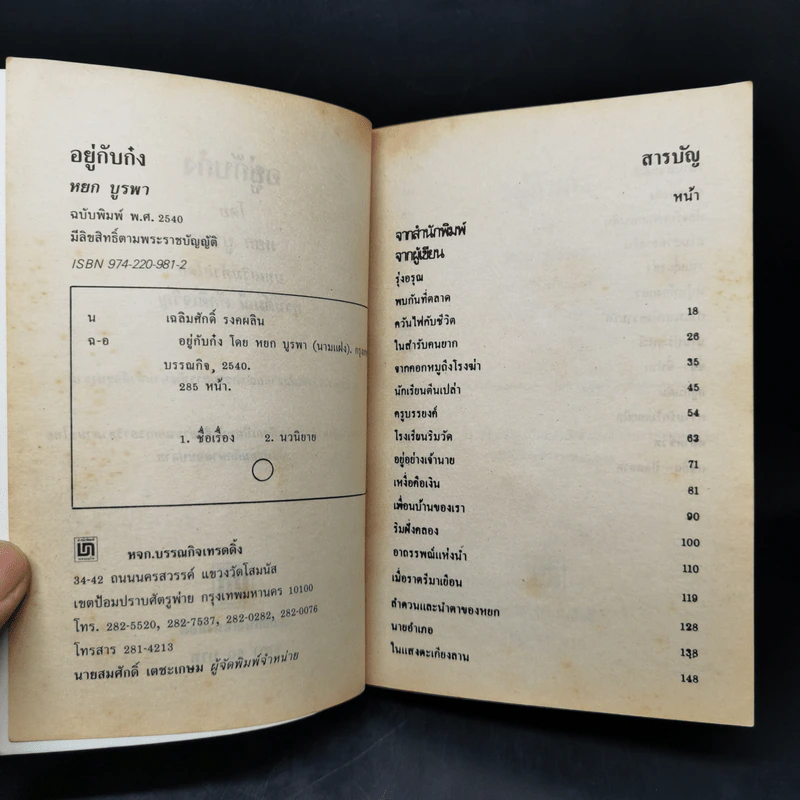 อยู่กับก๋ง
หยก บูรพา
ฉบับพิมพ์ พ.ศ. 2540
มีลิขสิทธิ์ตามพระราชบัญญัติ
ISBN 974-220-981-2
น เฉลิมศักดิ์ รงคผลิน
ฉ-อ อยู่กับก๋ง โดย หยก บูรพา (นามแฝง).
บรรณกิจ, 2540.
285 หน้า.
1. ชื่อเรื่อง 2. นวนิยาย
หจก.บรรณกิจเทรดดิ้ง
34-42 ถนนนครสวรรค์ แขวงวัดโสมนัส
เขตป้อมปราบศัตรูพ่าย กรุงเทพมหานคร 10100
โทร. 282-5520, 282-7537, 282-0282, 282-0076
โทรสาร 281-4213
นายสมศักดิ์ เตชะเกษม ผู้จัดพิมพ์จำหน่าย
สารบัญ
หน้า
จากสำนักพิมพ์
จากผู้เขียน
รุ่งอรุณ
พบกันที่ตลาด 18
ควันไฟกับชีวิต 26
ในสำรับคนยาก 35
จากคอกหมูถึงโรงฆ่า 45
นักเรียนตีนเปล่า 54
ครูบรรยงค์ 63
โรงเรียนริมวัด 71
อยู่อย่างเจ้านาย 81
เหงื่อคือเงิน 90
เพื่อนบ้านของเรา 100
ริมฝั่งคลอง 110
อาถรรพณ์แห่งน้ำ 119
เมื่อราตรีมาเยือน 128
ลำดวนและน้ำตาของหยก 138
นายอำเภอ 148
ในแสงตะเกียงลาน